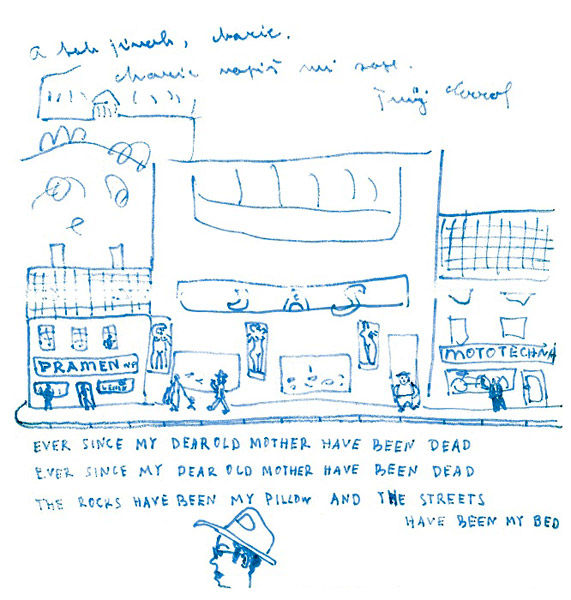 a tak jinak, 
charie napiš mi zase.
Tvůj
PRAMEN NP
MOTOTECHNA
EVER SINCE MY DEAR OLD MOTHER HAVE BEEN DEAD
EVER SINCE MY DEAR OLD MOTHER HAVE BEEN DEAD
THE ROCKS HAVE BEEN MY PILLOW AND THE STREETS
HAVE BEEN MY BED